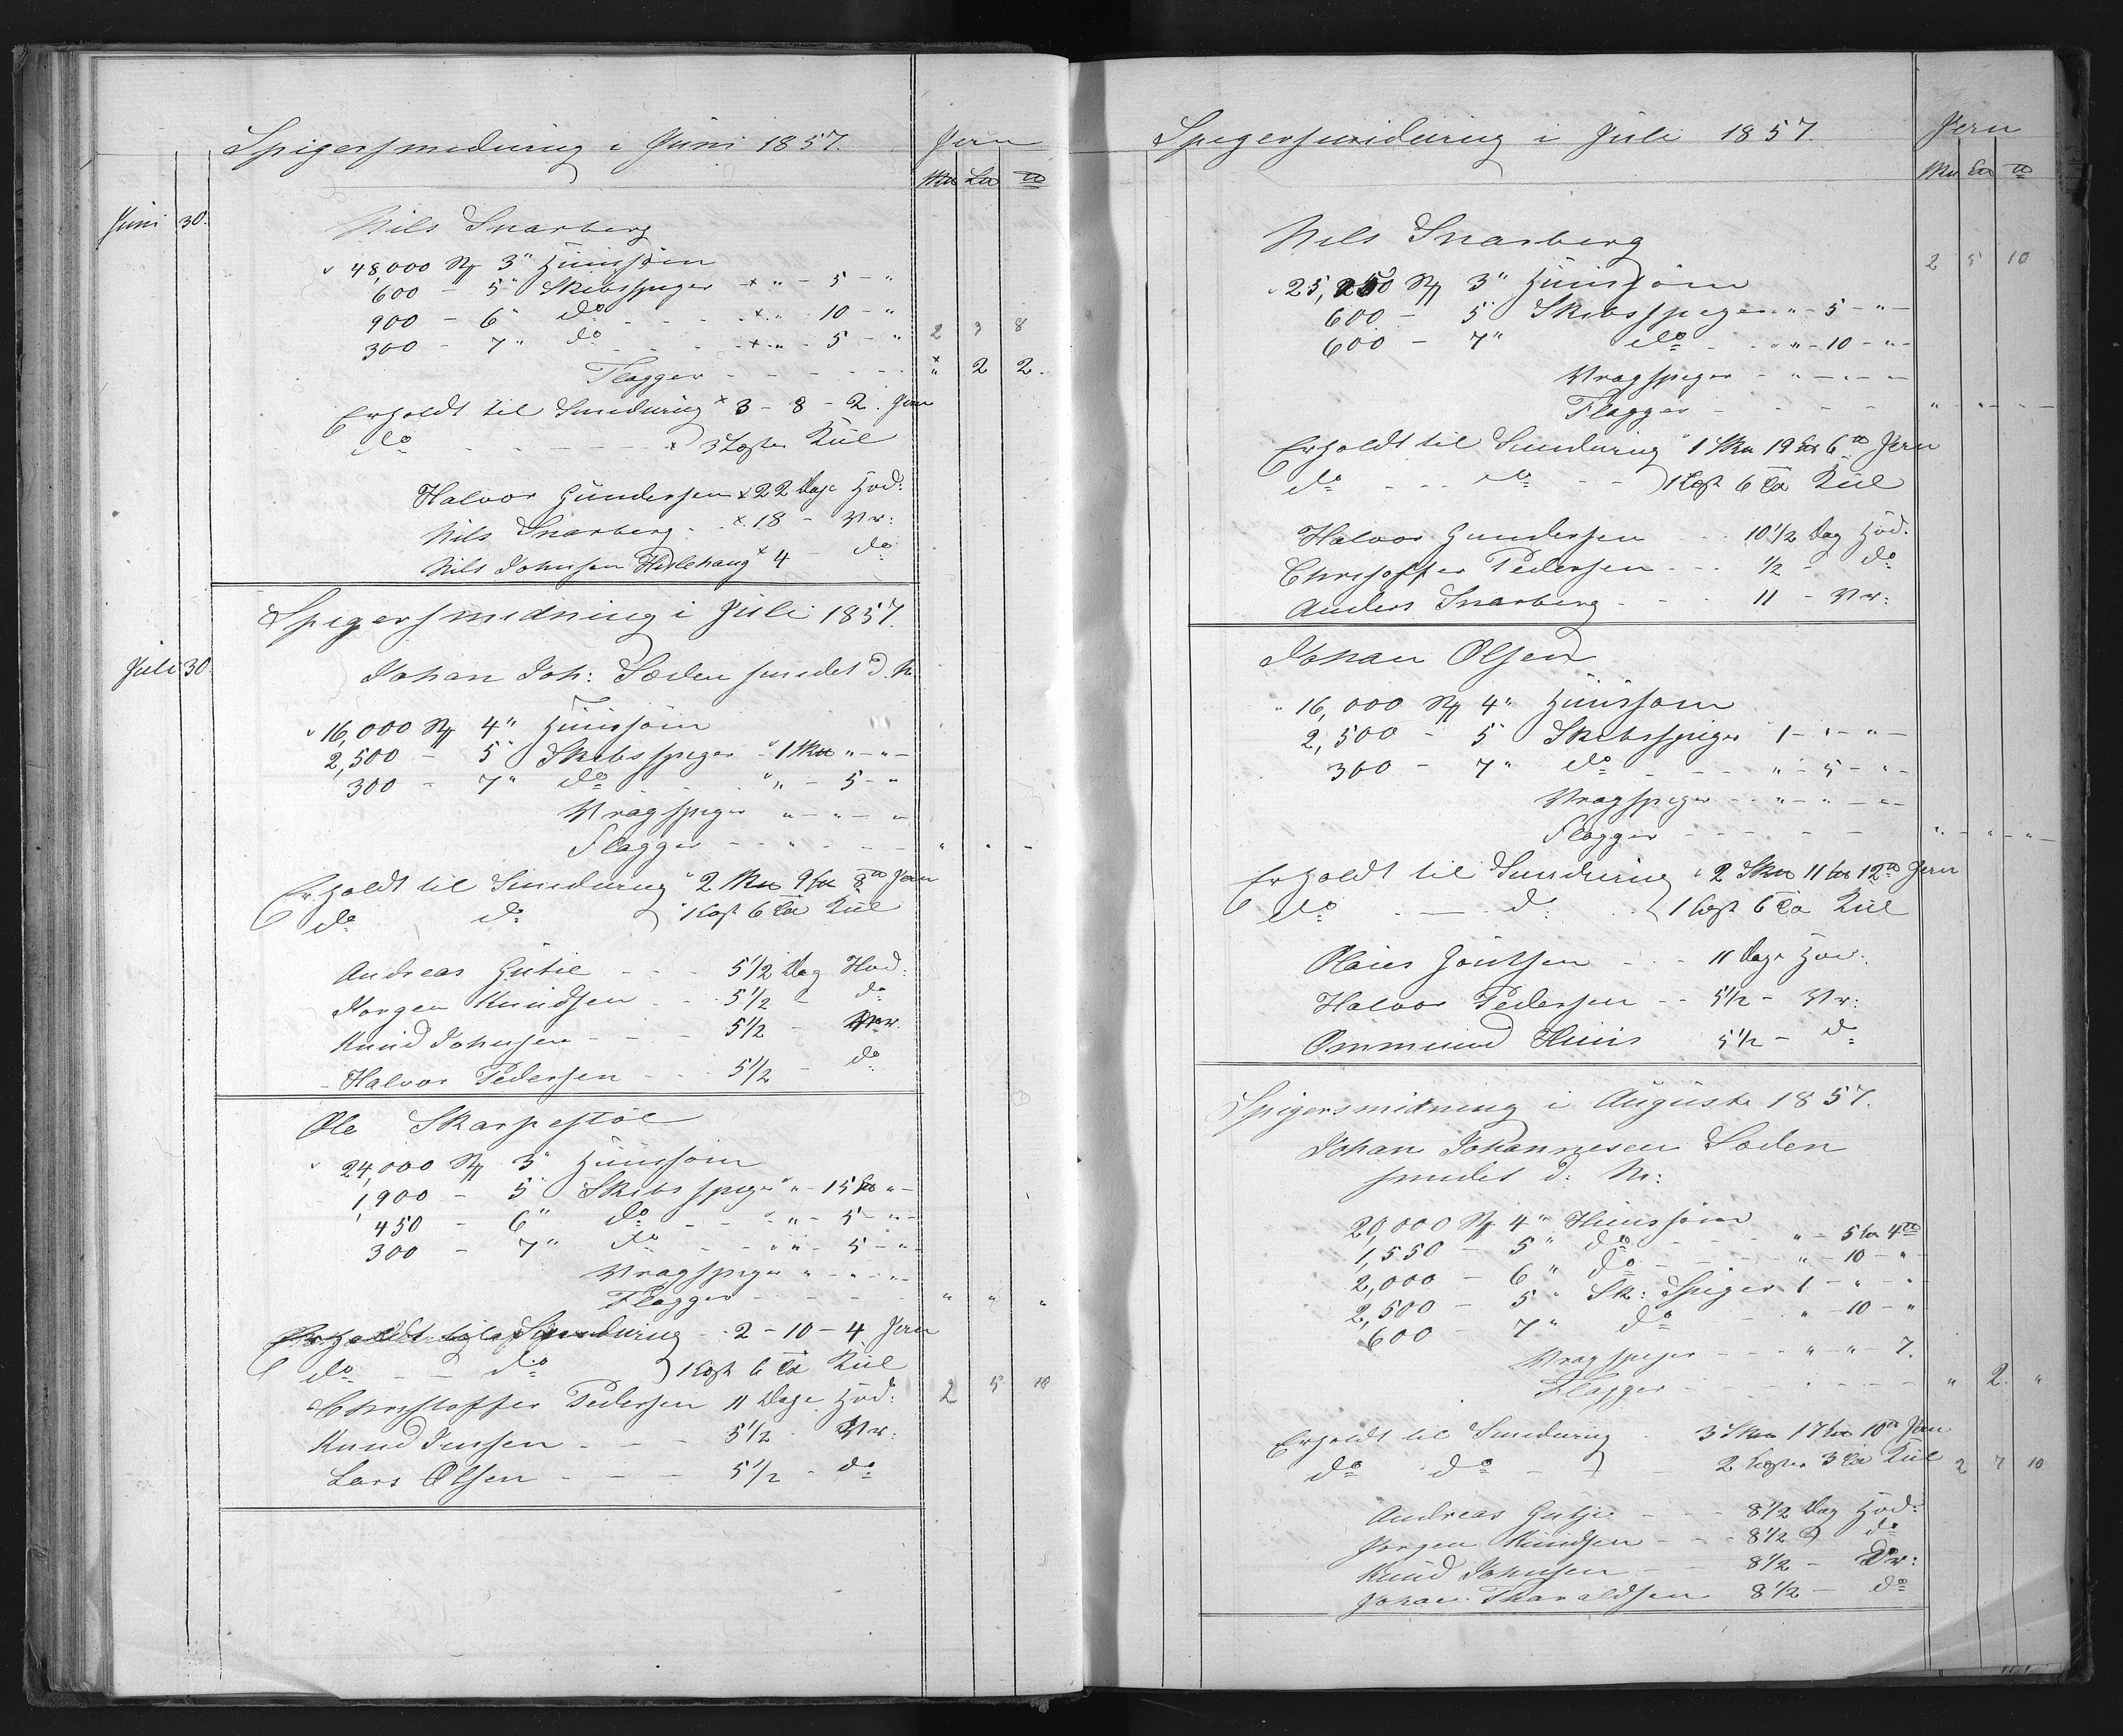 Spigersmedning i Juni 1857. Jern
Sku Lu ℔
Juni 30. Nils Snarberg
48,000 St 3" Huussöm
600 - 5" Skibsspiger × " - 5 - "
900 - 6" do - - - × " 10 - "
300 - 7" do - - - × " - 5 - " 2 3 8
Flagger - - - - - " 2 2.
Erholdt til Smedning × 3 - 8 - 2. Jern
do - - - - × 3 Læster Kul
Halvor Gundersen × 22 Dage Hod:
Nils Snarberg - × 18 - Vr:
Nils Johnsen Heslehaug × 4 - do
Spigersmedning i Juli 1857.
Juli 30. Johan Joh: Loeden smedet d. M.
16,000 St 4" Huussöm
2,500 - 5" Skibsspiger - 1 Sku " - " -
300 - 7" do - - - " - 5 - "
Vragspiger " - " - "
Flagger - - " - - - " " "
Erholdt til Smedning " 2 Sku 9 Lu 8 ℔ Jern
do do 1 Læst 6 Kul
Andreas Gutie - - - 5 1/2 Dag Hod:
Jörgen Knudsen - - 5 1/2 - do
Knud Johnsen - - - 5 1/2 - Vr.
- Halvor Pedersen - - - 5 1/2 - do
Ole Skarpestöl
24,000 St 3" Huussöm
1,900 - 5" Skibsspiger " - 15 Lu " -
450 - 6" do - - - " - 5 - " -
300 - 7" do - - " - 5 - " -
Vragspiger " - " - "
Flagger - - - - - " " "
Erholdt til Smedning - - 2 - 10 - 4 Jern
do - - do 1 Læst 6 Kul
Christoffer Pedersen 11 Dage Hod: 2 5 10
Knud Jensen - - - 5 1/2 - Vr:
Lars Olsen - - - 5 1/2 - do
Spigersmidning i Juli 1857. Jern
Sku Lu ℔
Nils Snarberg 2 5 10
25,250 St 3" Huussöm
600 - 5" Skibsspiger " - 5 - " -
600 - 7" do - - " - 10 - " -
Vragspiger - " - " - "
Flagger - - - - - " - " - "
Erholdt til Smedning " 1 Sku 19 Lu 6 ℔ Jern
do - - - do - - 1 Læst 6 Kul
Halvor Gundersen - - - 10 1/2 Dag Hod.
Christoffer Pedersen - - - 1/2 - do
Anders Snarberg - - - 11 - Vr:
Johan Olsen
16,000 St 4" Huussöm
2,500 - 5" Skibsspiger " 1 - " - " -
300 - 7" do - - - " - 5 - " -
Vragspiger - - " - " - "
Flagger - - - - - " - " - " -
Erholdt til Smedning " 2 Sku 11 Lu 12 ℔ Jern
do - - do - - 1 Læst 6 Kul
- - - 11 Dage Hod:
Halvor Pedersen - - 5 1/2 - Vr:
Ommund Huus 5 1/2 - do
Spigersmidning i Auguste 1857.
Johan Johannesen Loeden
smedet d. M:
20,000 St 4" Huussöm
1,550 - 5" do - - - " - 5 Lu 4 ℔
2,000 - 6" do - - - " - 10 - "
2,500 - 5" Sk: Spiger 1 - " - "
600 - 7" do - - " - 10 - "
Vragspiger - - - " - " - 7.
Flagger - - - - - " 2. "
Erholdt til Smedning - 3 Sku 17 Lu 10 ℔ Jern
do do - - - 2 Læster 3 Kul 2 7 10
Andreas Gutje - - - 8 1/2 Dag Hod:
Jörgen Knudsen - - - 8 1/2 do
Knud Johnsen - - 8 1/2 - Vr:
Johan Tharaldsen 8 1/2 - do